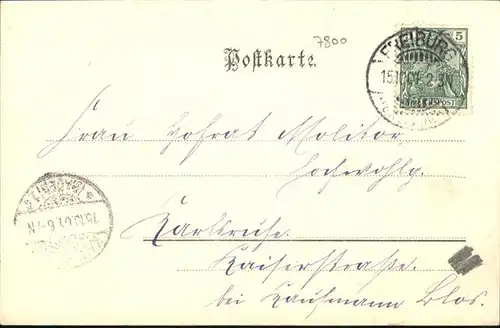 7800
5
FREIBURG
15.10.01. 2-3N
REICHSPOST
Postkarte.
Frau Hofrat Molitor,
Hochwohlg.
15.10.01. 6-7N
Karlsruhe.
Kaiserstraße.
bei Kaufmann Blos.